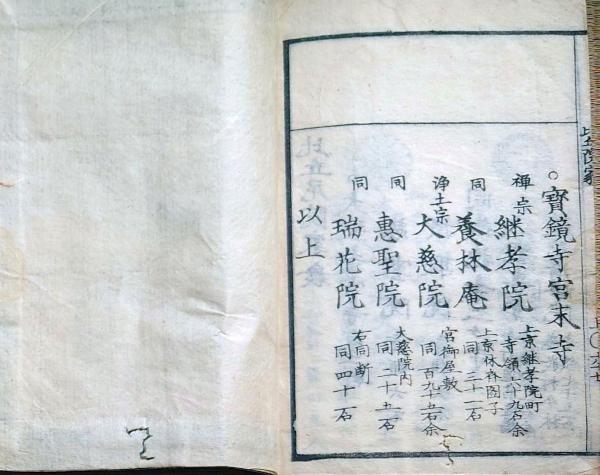 ○寳鏡寺宮末寺
禅宗 継孝院 上京継孝院町 寺領六十九石余
同 養林庵 上京休斉図子 同三十一石
浄土宗 大慈院 宮御屋敷 同百九十五石余
同 惠聖院 大慈院内 同二十五石
同 瑞花院 右同断 同四十石
以上